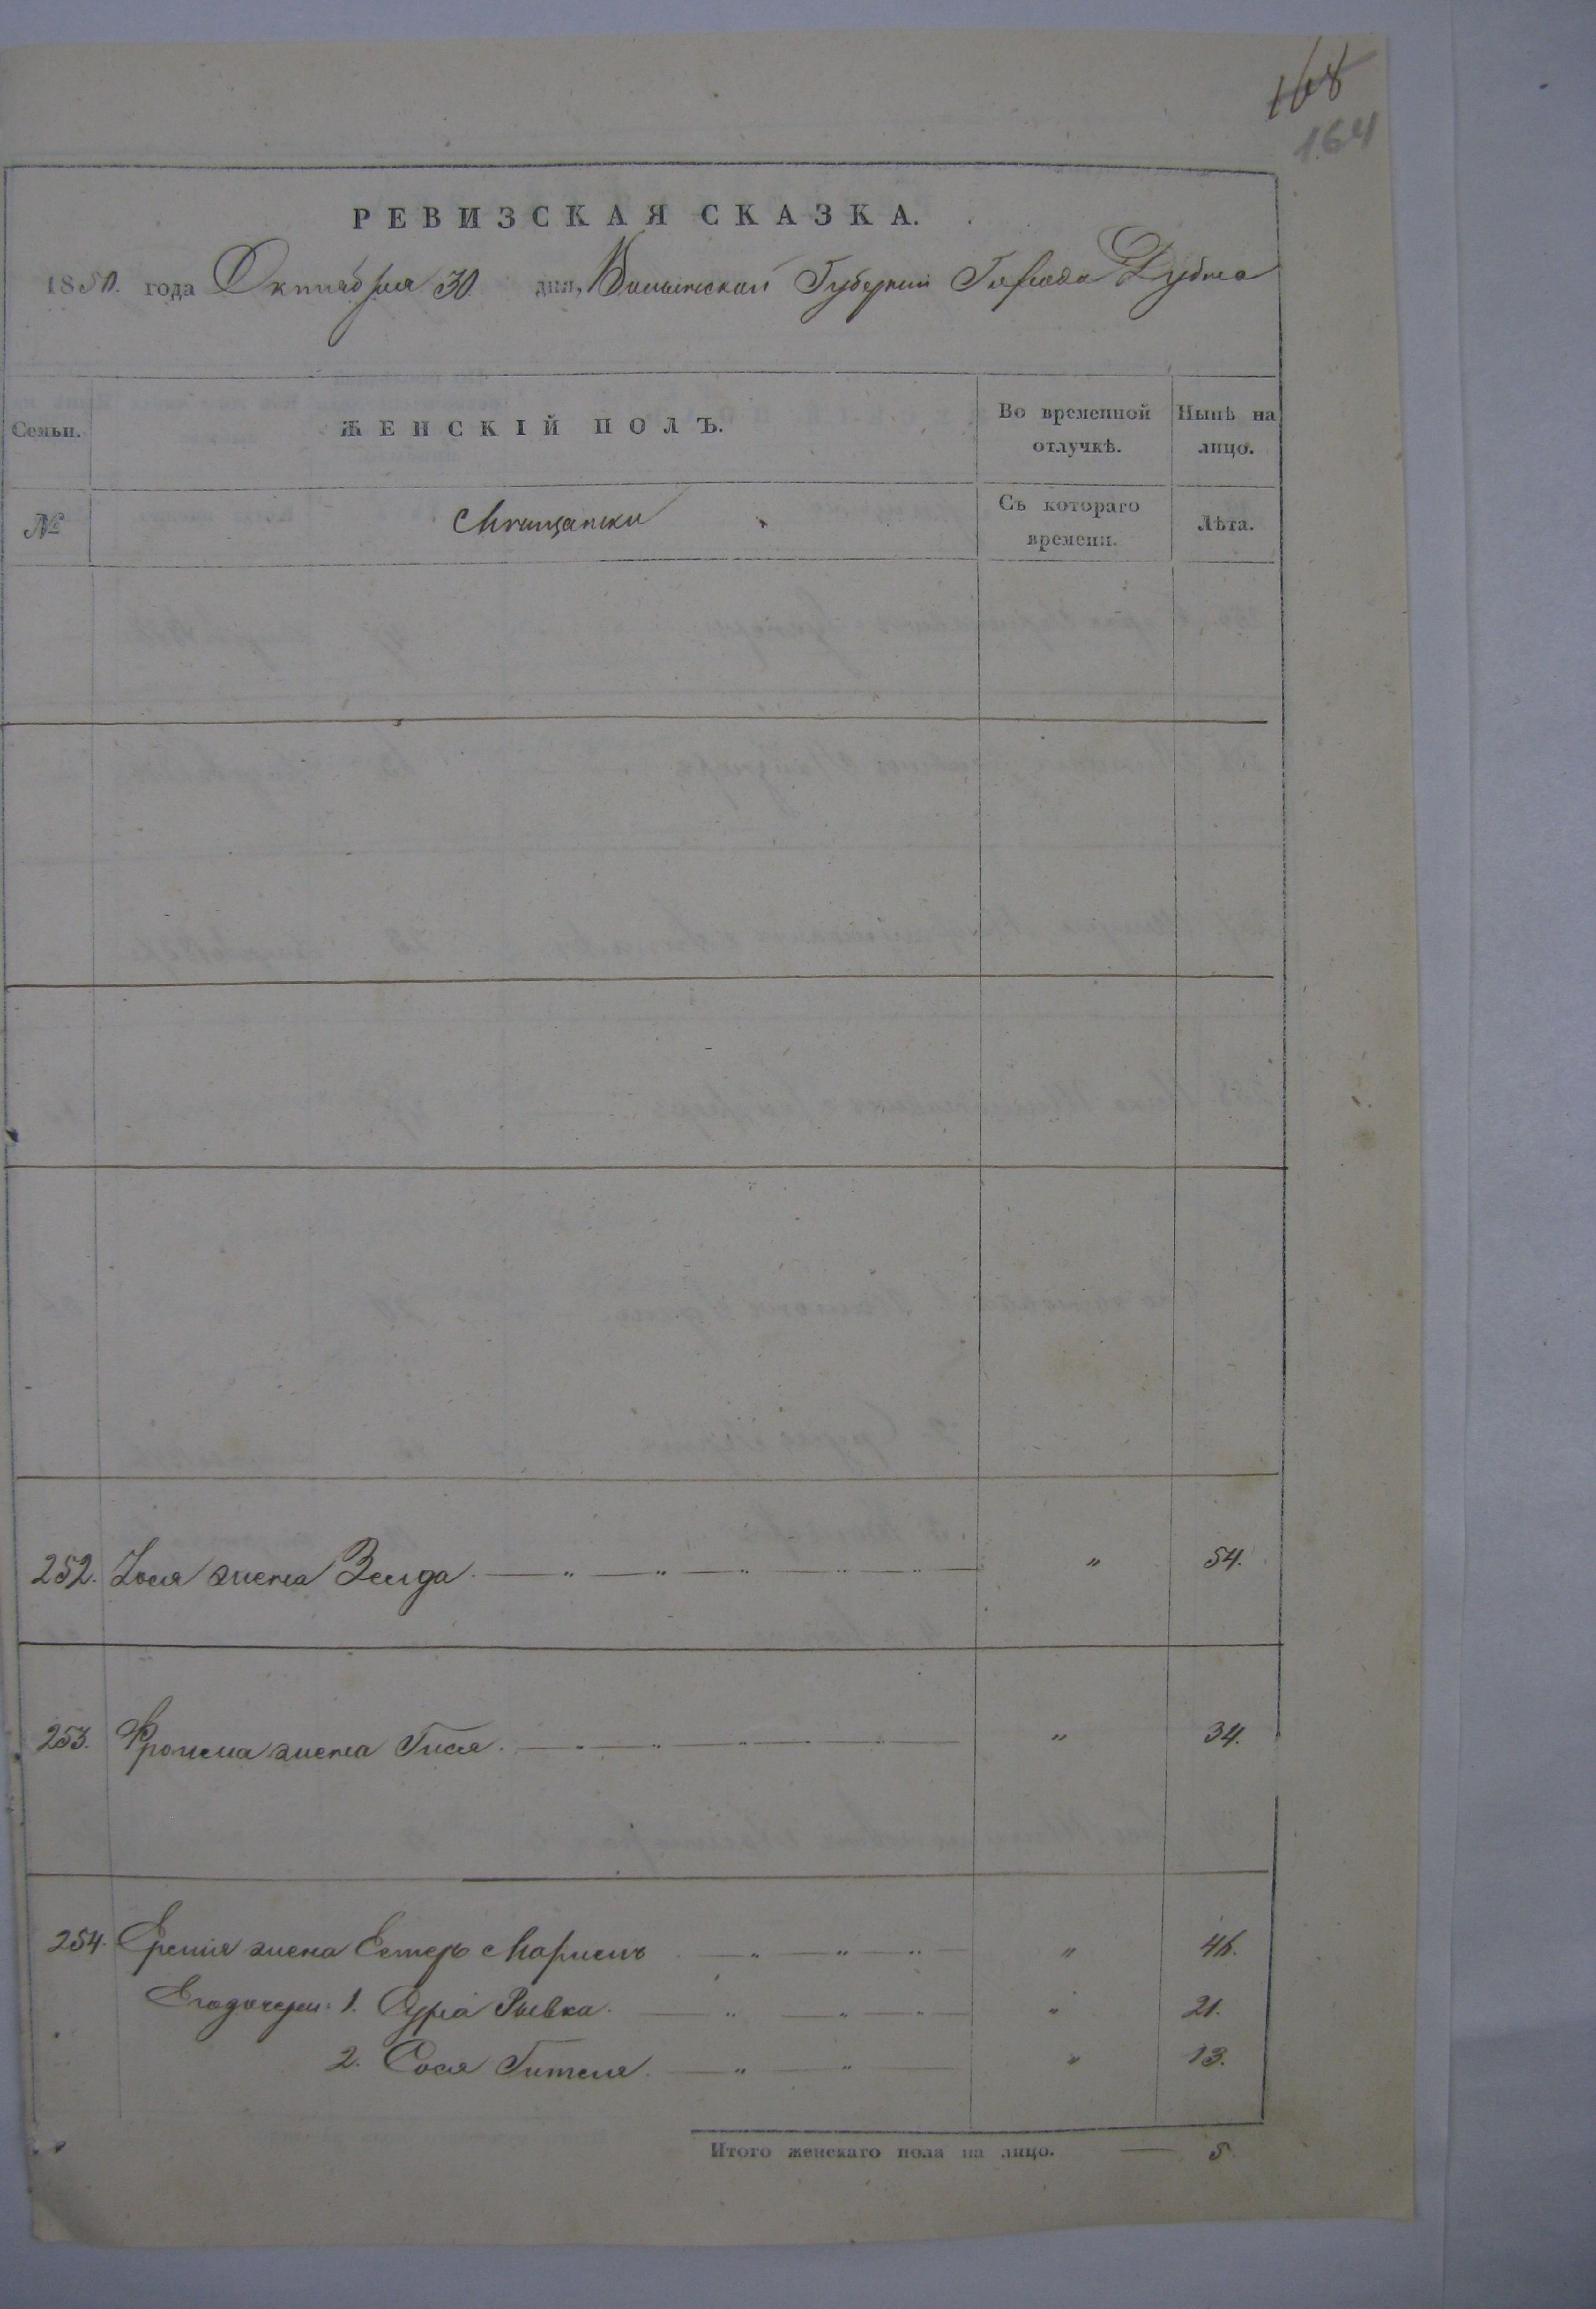 168
164
РЕВИЗСКАЯ СКАЗКА.
1850. года Октября 30 дня, Волынской Губернии Города Дубна
Семьи. ЖЕНСКІЙ ПОЛЪ. Во временной отлучкѣ. Нынѣ на лицо.
№ Мещанки Съ котораго времени. Лѣта.
252. жена Зелда " 54.
253. Фроима жена Гися " 34.
254. жена Естеръ Мариемъ "
Его дочери: 1. Рывка " 21.
2. Сося Гителя " 13.
Итого женскаго пола на лицо. — 5